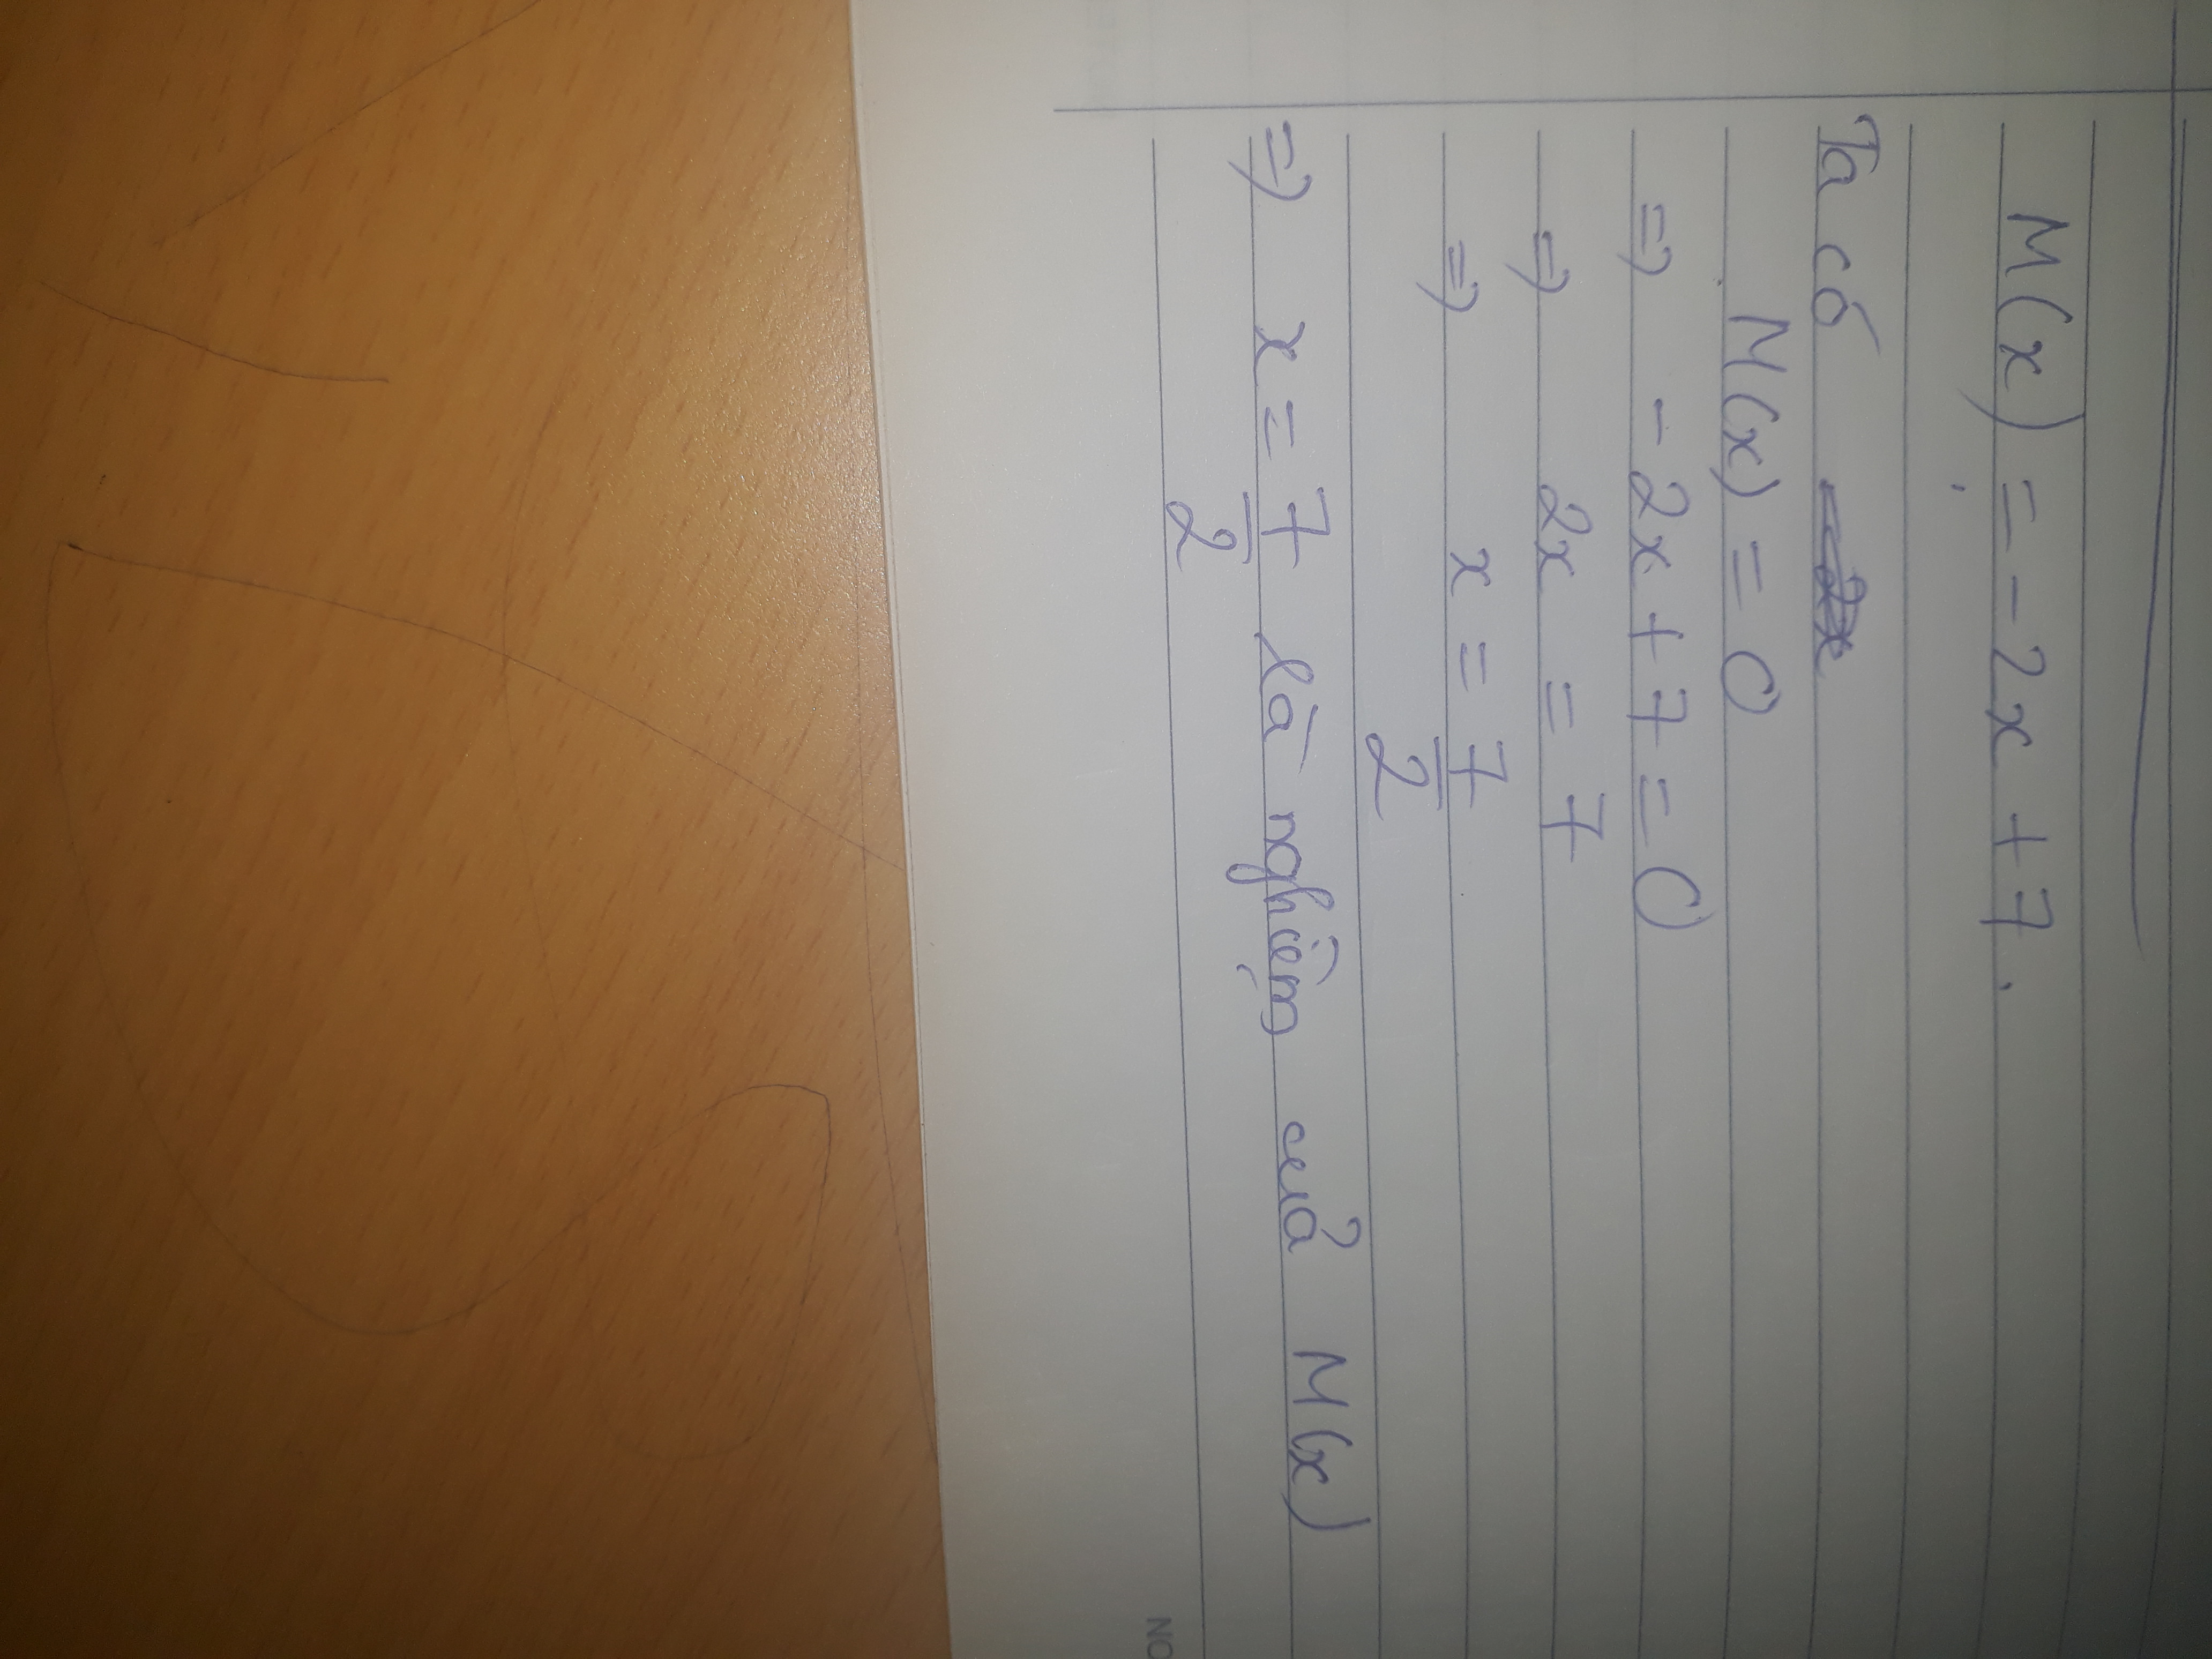 M(x) = - 2x + 7.
Ta có
M(x) = 0
=> - 2x + 7 = 0
=> 2x = 7
=> x = 7/2
=> x = 7/2 là nghiệm của M(x)
NO